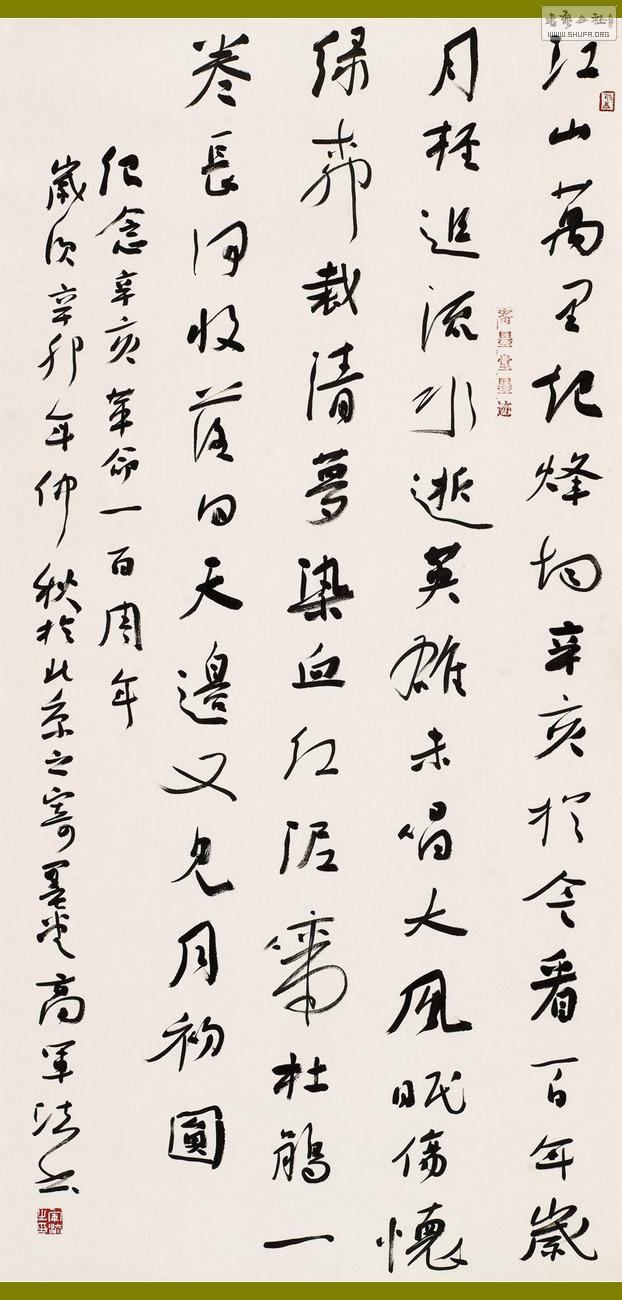 書藝公社
WWW.SHUFA.ORG
江山萬里起烽烟辛亥於今看百年歲
寄墨堂墨迹
月輕追流水逝英雄未唱大風眠傷懷
綠栽清夢染血紅泥杜鵑一
卷長河收落日天邊又見月初圓
紀念辛亥革命一百周年
歲次辛卯年仲秋於北京之寄墨堂高軍法書